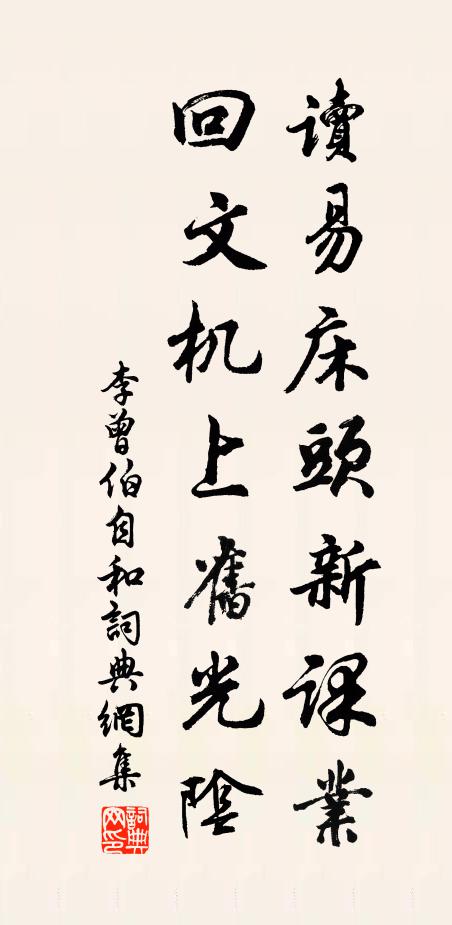 讀易床頭新課業
回文机上舊光陰
李曾伯自和詞典網集
詞典網印